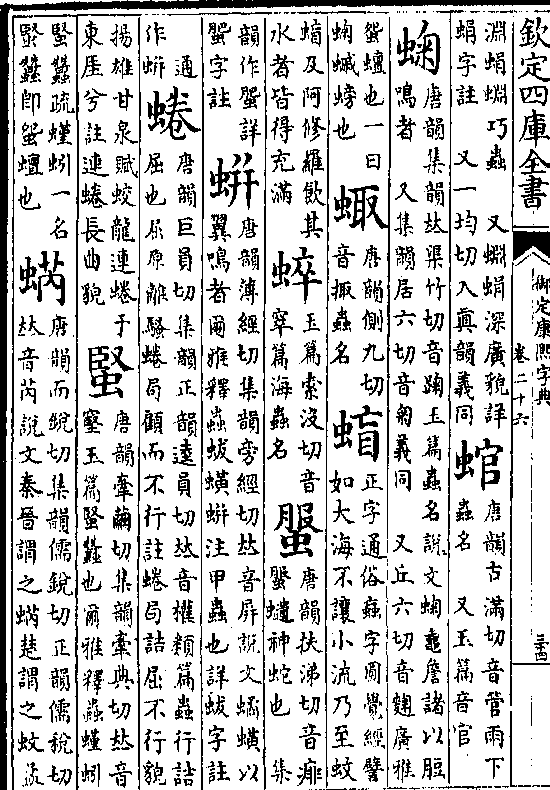 欽定四庫全書
御定康熙字典
卷二十六
三十四
淵蜎蜵巧蟲 又蜵蜎深廣貌詳
蜎字註 又一均切入眞韻義同 䗆 唐韻古滿切音管雨下
蟲名 又玉篇音官
䗇 唐韻集韻𠀤渠竹切音踘玉篇蟲名說文䗇鼁詹諸以脰
鳴者 又集韻居六切音匊義同 又丘六切音麴廣雅
蛩蟺也一曰
蜠蝛螃也 䗈 唐韻側九切
音掫蟲名 䗉 正字通俗䖟字圓覺經譬
如大海不讓小流乃至蚊
䗉及阿修羅飲其
水者皆得充滿 䘹 玉篇索没切音
窣篇海蟲名 䘿 唐韻扶涕切音痱
蟨蠦神蛇也 集
韻作蜰詳
蜰字註 蛢 唐韻薄經切集韻旁經切𠀤音屏說文蟠蟥以
翼鳴者爾雅釋蟲蛂蟥蛢注甲蟲也詳蛂字註
通
作蛢 蜷 唐韻巨員切集韻正韻逵員切𠀤音權類篇蟲行詰
屈也屈原離騷蜷局顧而不行註蜷局詰屈不行貌
揚雄甘泉賦蛟龍連蜷于
東厓兮註連蜷長曲貌 蜸 唐韻牽繭切集韻牽典切𠀤音
䡖玉篇蜸蠶也爾雅釋蟲螼蚓
蜸蠶疏螼蚓一名
蜸蠶卽蛩蟺也 蜹 唐韻而銳切集韻儒銳切正韻儒稅切
𠀤音芮說文秦晉謂之蜹楚謂之蚊孟